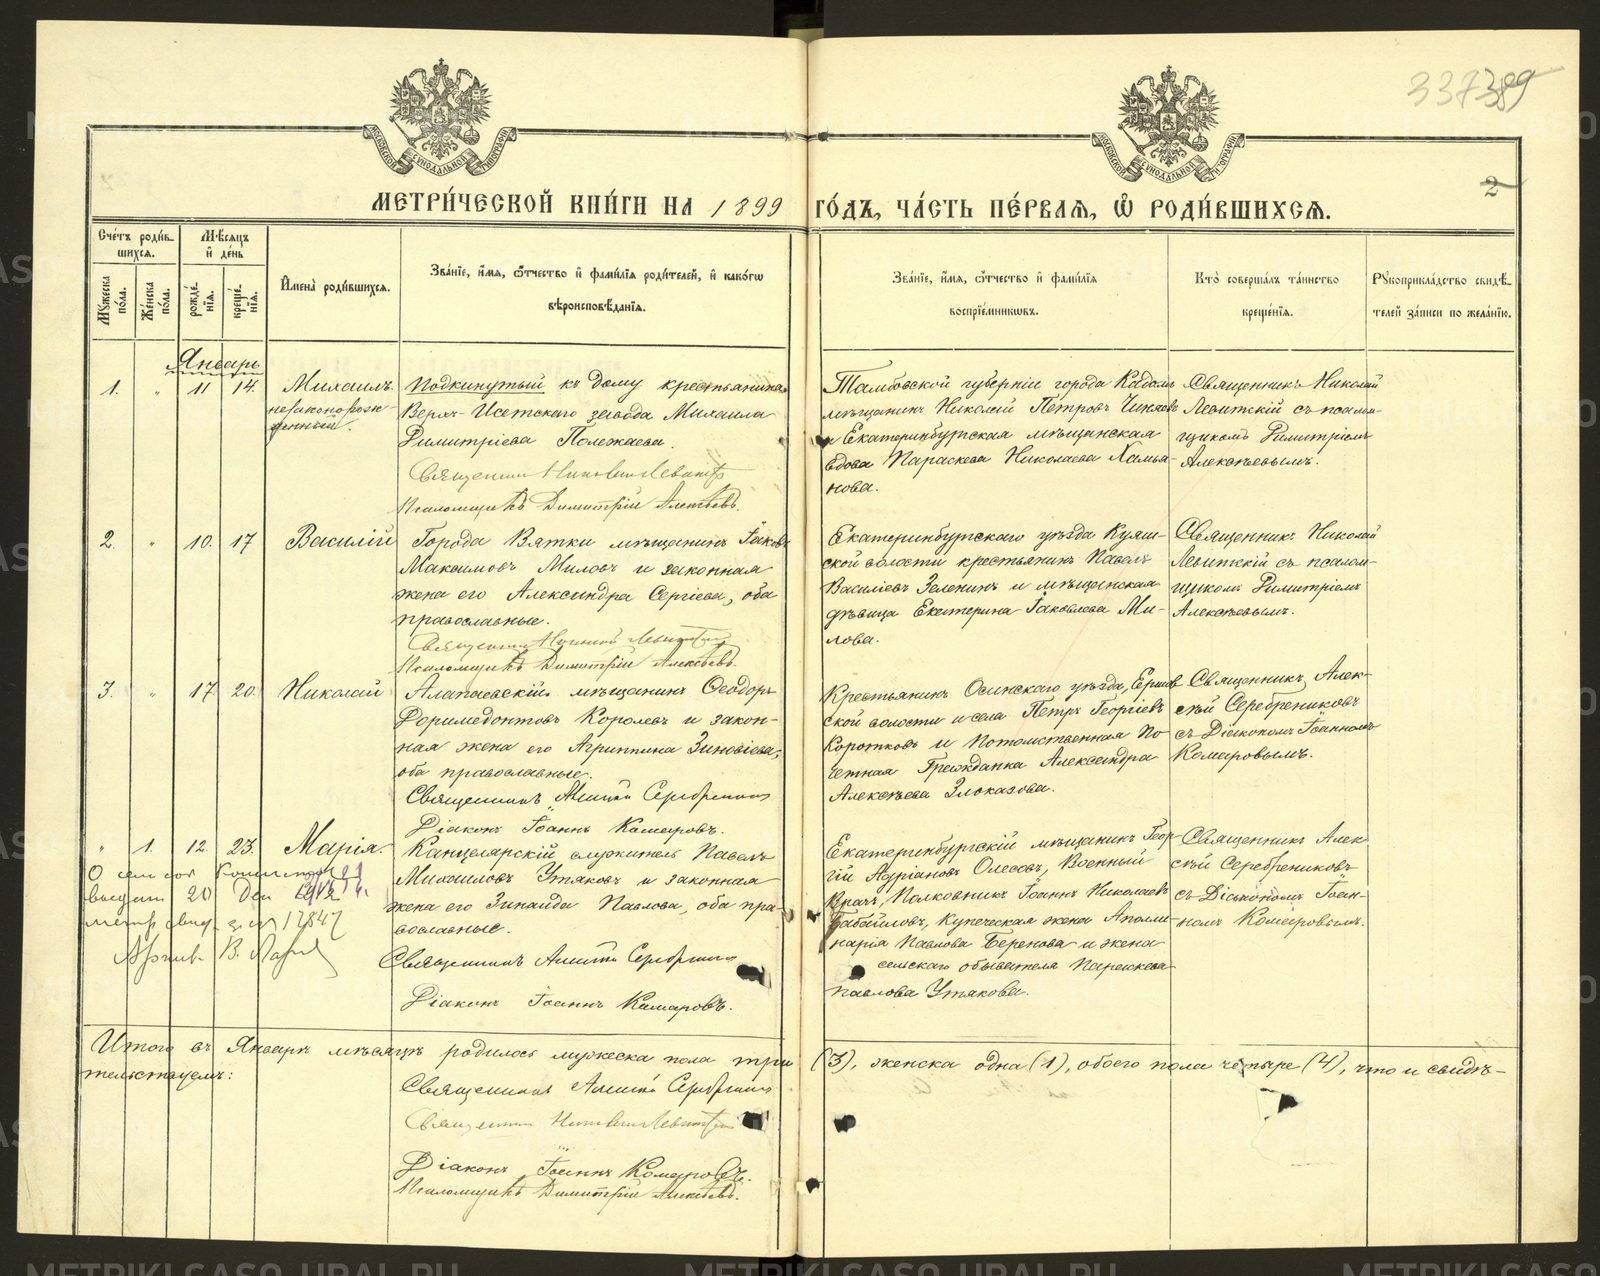 337 389
2
МОСКОВСКОЙ СѴНОДАЛЬНОЙ ТИПОГРАФІИ
МОСКОВСКОЙ СѴНОДАЛЬНОЙ ТИПОГРАФІИ
МЕТРИ́ЧЕСКОЙ КНИ́ГИ НА 1899 ГО́ДЪ, ЧА́СТЬ ПЕ́РВАЯ, Ѡ҆ РОДИ́ВШИХСЯ.
Сче́тъ роди́в-
шихся.
Му́жеска по́ла.
Же́нска по́ла.
Мѣ́сяцъ
и҆ де́нь
рожде́нїя.
креще́нїя.
И҆мена̀ роди́вшихся.
Зва́нїе, и҆́мя, ѻ҆́тчество и҆ фами́лїя роди́телей, и҆ како́гѡ
вѣроисповѣ́данїя.
Зва́нїе, и҆́мя, ѻ҆́тчество и҆ фами́лїя
воспрїе́мникѡвъ.
Кто̀ соверша́лъ та́инство
креще́нїя.
Рꙋкоприкла́дство свидѣ́-
телей за́писи по жела́нїю.
Январь
1. " 11 14. Михаилъ
незаконорож-
денный.
Подкинутый къ дому крестьянина
Верхъ-Исетскаго завода Михаила
Димитріева Полежаева.
Священникъ Николай Левитскій
Псаломщикъ Димитрій Алексѣевъ.
Тамбовской губерніи города Кадома
мѣщанинъ Николай Петровъ
и Екатеринбургская мѣщанская
вдова Параскева Николаева Хамья-
нова.
Священникъ Николай
Левитскій съ псалом-
щикомъ Димитріемъ
Алексѣевымъ.
2. " 10. 17 Василій
Города Вятки мѣщанинъ Іаковъ
Максимовъ Миловъ и законная
жена его Александра Сергіева, оба
православные.
Священникъ Николай Левитскій
Псаломщикъ Димитрій Алексѣевъ.
Екатеринбургскаго уѣзда Куяш-
ской волости крестьянинъ Павелъ
Василіевъ Зеленинъ и мѣщанская
дѣвица Екатерина Іаковлева Ми-
лова.
Священникъ Николай
Левитскій съ псалом-
щикомъ Димитріемъ
Алексѣевымъ.
3. " 17. 20. Николай
Алапаевскій мѣщанинъ Ѳеодоръ
Доримедонтовъ Королевъ и закон-
ная жена его Агриппина Зиновіева,
оба православные.
Священникъ Алексій Серебрениковъ
Діаконъ Іоаннъ Комаровъ.
Крестьянинъ Осинскаго уѣзда, Ершов-
ской волости и села Петръ Георгіевъ
Коротковъ и Потомственная По-
четная Гражданка Александра
Алексѣева Злоказова.
Священникъ Алек-
сѣй Серебрениковъ
съ Діакономъ Іоанномъ
Комаровымъ.
" 1. 12. 23. Марія.
Канцелярскій служитель Павелъ
Михаиловъ Утяковъ и законная
жена его Зинаида Павлова, оба пра-
вославные.
Священникъ Алексій Серебрениковъ
Діаконъ Іоаннъ Комаровъ.
Екатеринбургскій мѣщанинъ Геор-
гій Адріановъ Олесовъ, Военный
Врачъ, Полковникъ Іоаннъ Николаевъ
Бабаиловъ, Купеческая жена Аполли-
нарія Павлова Беренова и жена
сельскаго обывателя Параскева
Павлова Утякова.
Священникъ Алек-
сѣй Серебрениковъ
съ Діакономъ Іоан-
номъ Комаровымъ.
О сем
выдан 20 Дек 1912 г.
метр. свид. за № 17847
Архив. В.
Итого въ Январѣ мѣсяцѣ родилось мужеска пола три (3), женска одна (1), обоего пола четыре (4), что и свидѣ-
тельствуемъ:
Священникъ Алексій Серебрениковъ
Священникъ Николай Левитскій
Діаконъ Іоаннъ Комаровъ.
Псаломщикъ Димитрій Алексѣевъ.
METRIKI.GASO-URAL.RU
METRIKI.GASO-URAL.RU